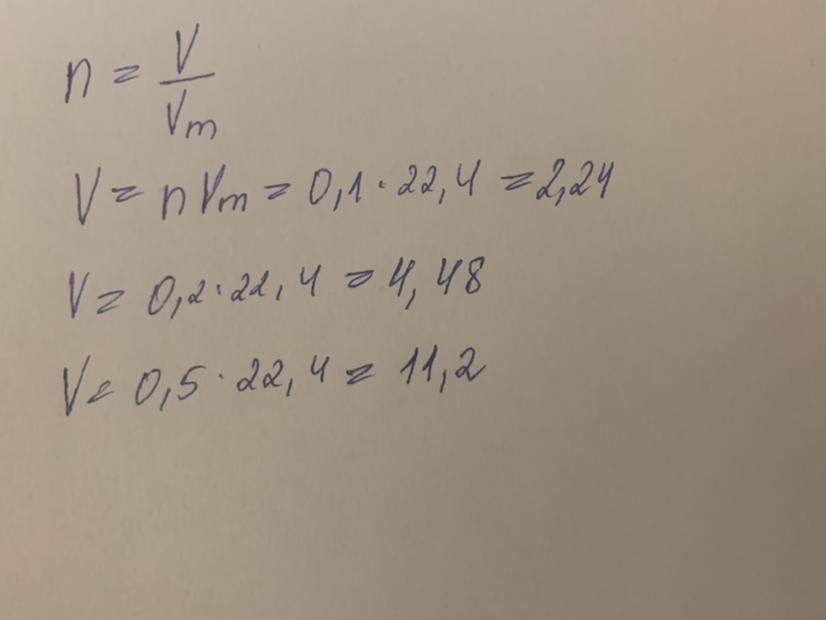 n = V/Vm
V = n Vm = 0,1 · 22,4 = 2,24
V = 0,2 · 22,4 = 4,48
V = 0,5 · 22,4 = 11,2